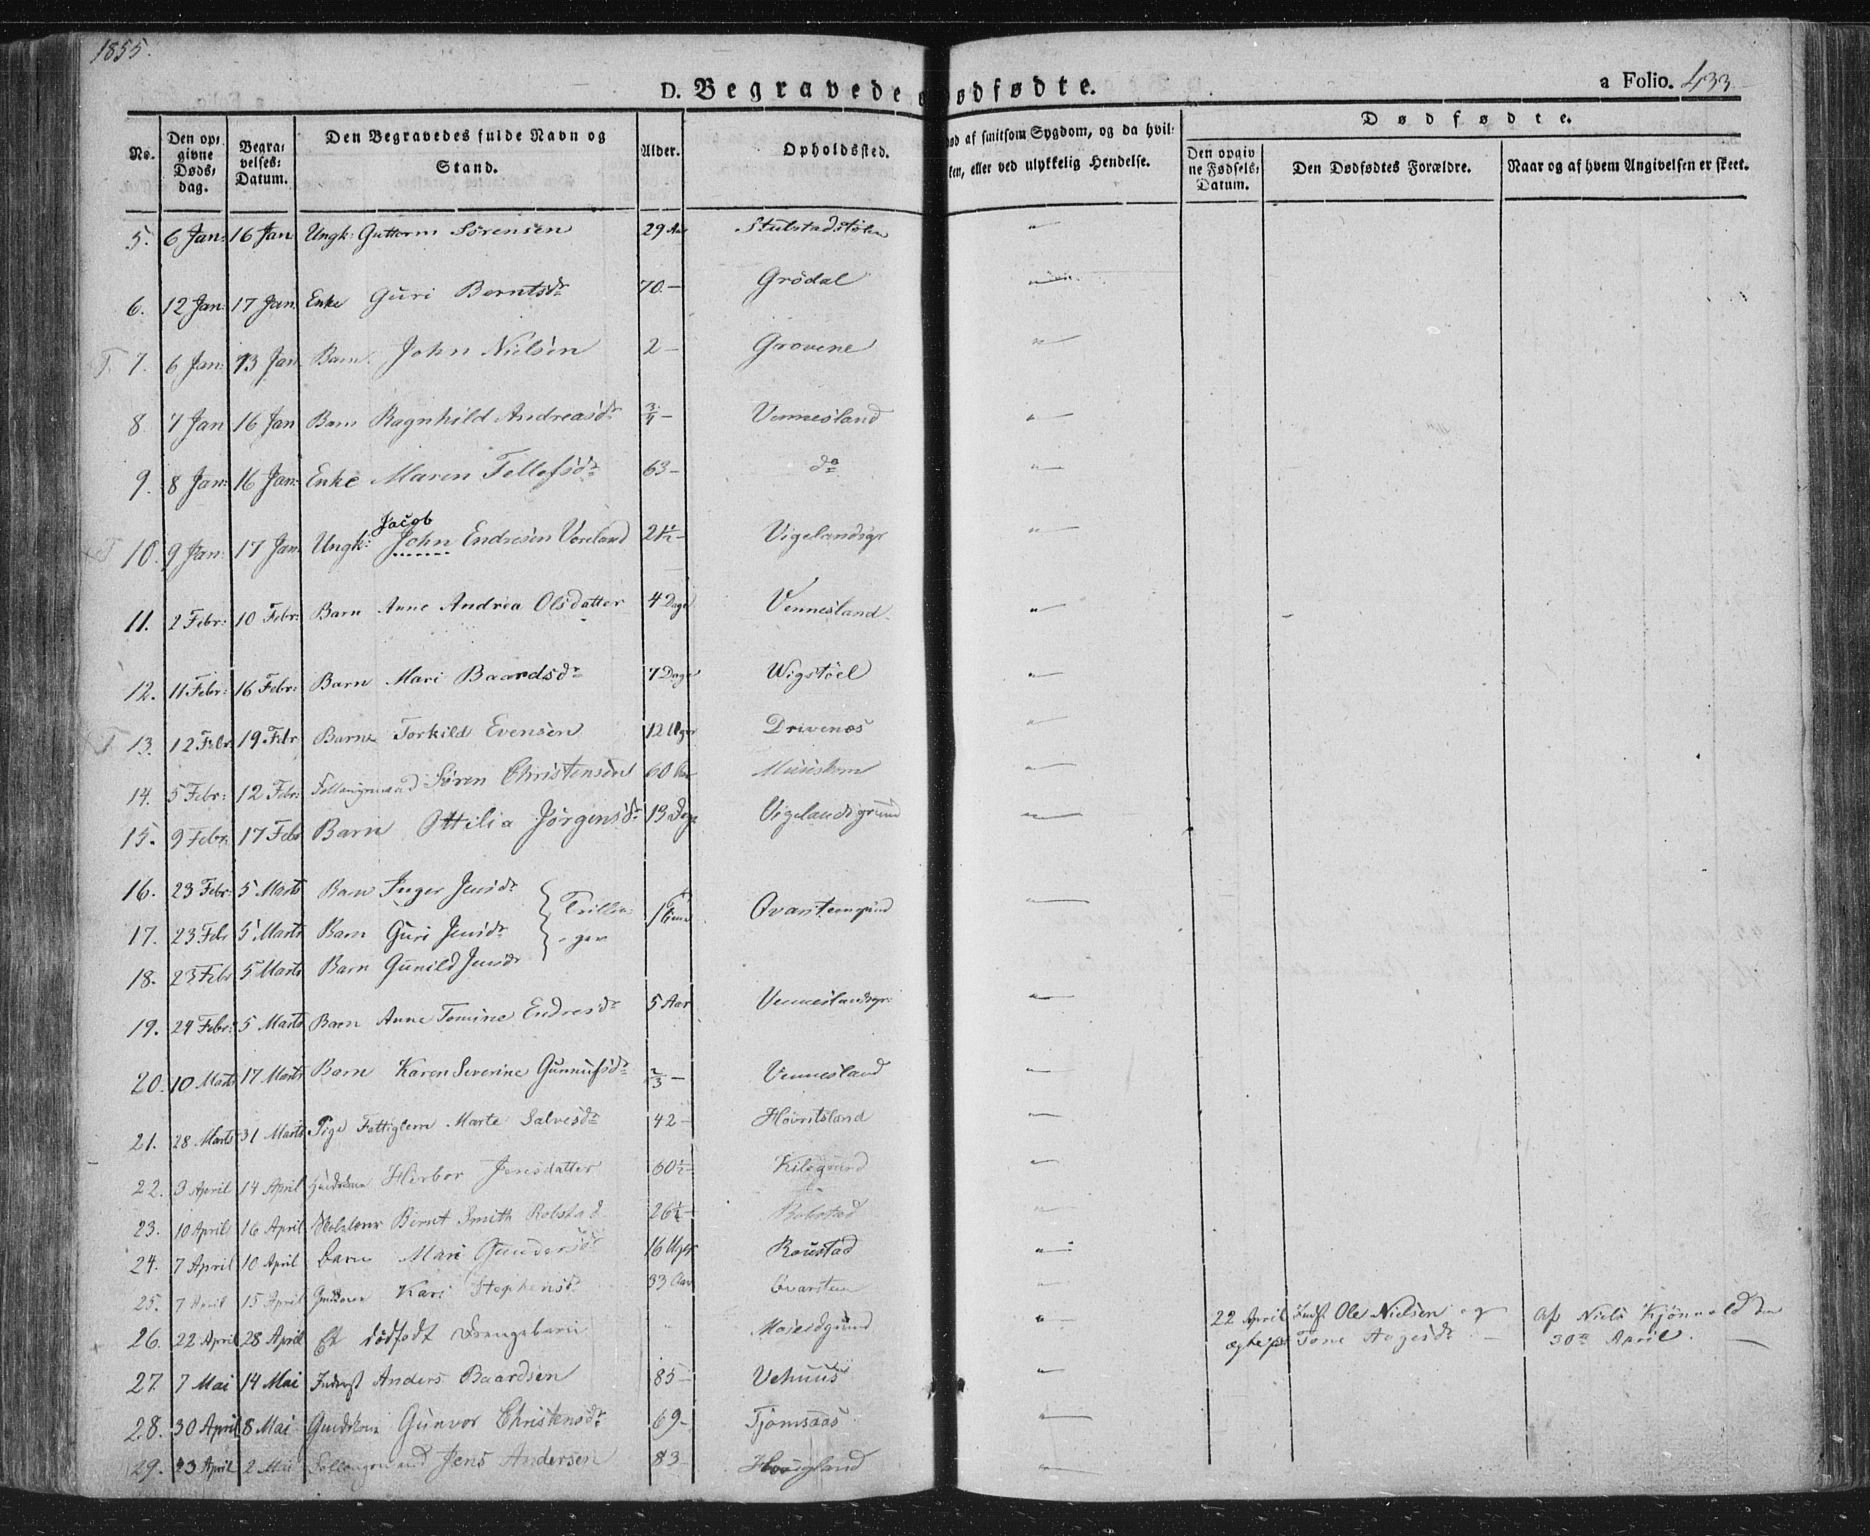 1855.
D. Begravede o ødfødte.
a Folio. 433
No.
Den op=
givne
Døds=
dag.
Begra=
velses=
Datum.
Den Begravedes fulde Navn og
Stand.
Alder.
Opholdssted.
ød af smitsom Sygdom, og da hvil=
ken, eller ved ulykkelig Hendelse.
Dødfødte.
Den opgiv
ne Fødsels=
Datum.
Den Dødfødtes Forældre.
Naar og af hvem Angivelsen er skeet.
5. 6 Jan: 16 Jan Ungk: Guttorm Sörensen 29 Aar "
6. 12 Jan: 17 Jan. Enke Guri Berntsdr 70 – Grödal "
T. 7. 6 Jan: 13 Jan Barn John Nielsen 2 – Grovene "
8. 7 Jan 16 Jan Barn Ragnhild Andreasdr 3/4 – Vennesland "
9. 8 Jan: 16 Jan: Enke Maren Tellefsdr 63 – do "
Jacob
T 10. 9 Jan: 17 Jan Ungk: John Endresen Vöreland 21½ – Vigelandsgr "
11. 2 Febr: 10 Febr: Barn Anne Andrea Olsdatter 4 Dage Vennesland "
12. 11 Febr: 16 Febr: Barn Mari Baardsdr 7 Dage Wigstöel "
T 13. 12 Febr 19 Febr Barn Torkild Evensen 12 Uger Drivenes "
14. 5 Febr: 12 Febr: Sören Christensen 60 Aar "
15. 9 Febr. 17 Febr Barn Ottilia Jörgensdr 13 Dage Vigelandsgrund "
16. 23 Febr: 5 Marts Barn Inger Jensdr
17. 23 Febr 5 Marts Barn Guri Jensdr Trillin- ger 1 Time Ovarsteengrund "
18. 23 Febr 5 Marts Barn Gunild Jensdr
19. 24 Febr: 5 Marts Barn Anne Tomine Endresdr 5 Aar Venneslandsgr: "
20. 10 Marts 17 Marts Barn Karen Severine Gunnufsdr 2/3 – Vennesland "
21. 28 Marts 31 Marts Pige Fattiglem Marte Salvesdr 42 – "
22. 3 April 14 April Herbor Jensdatter 60½ – Kilegrund "
23. 10 April 16 April Bernt Smith Robstad 26¼ – Robstad "
24. 7 April 10 April Barn Mari Gundersdr 16 Uger Roustad "
25. 7 April 15 April Kari Stephensdr 33 Aar Ovarsten "
26. 22 April 28 April Et dödfödt Drengebarn " "
22 April Indst Ole Nielsen og Af Niels Kjönnold den
Tone Aagesdr – 30te April. –
27. 7 Mai 14 Mai Inderst Anders Baardsen 85 – Vehuus "
28. 30 April 8 Mai Gunvor Christensdr 69 – Tjomsaas "
29. 23 April 2 Mai Jens Andersen 83 "